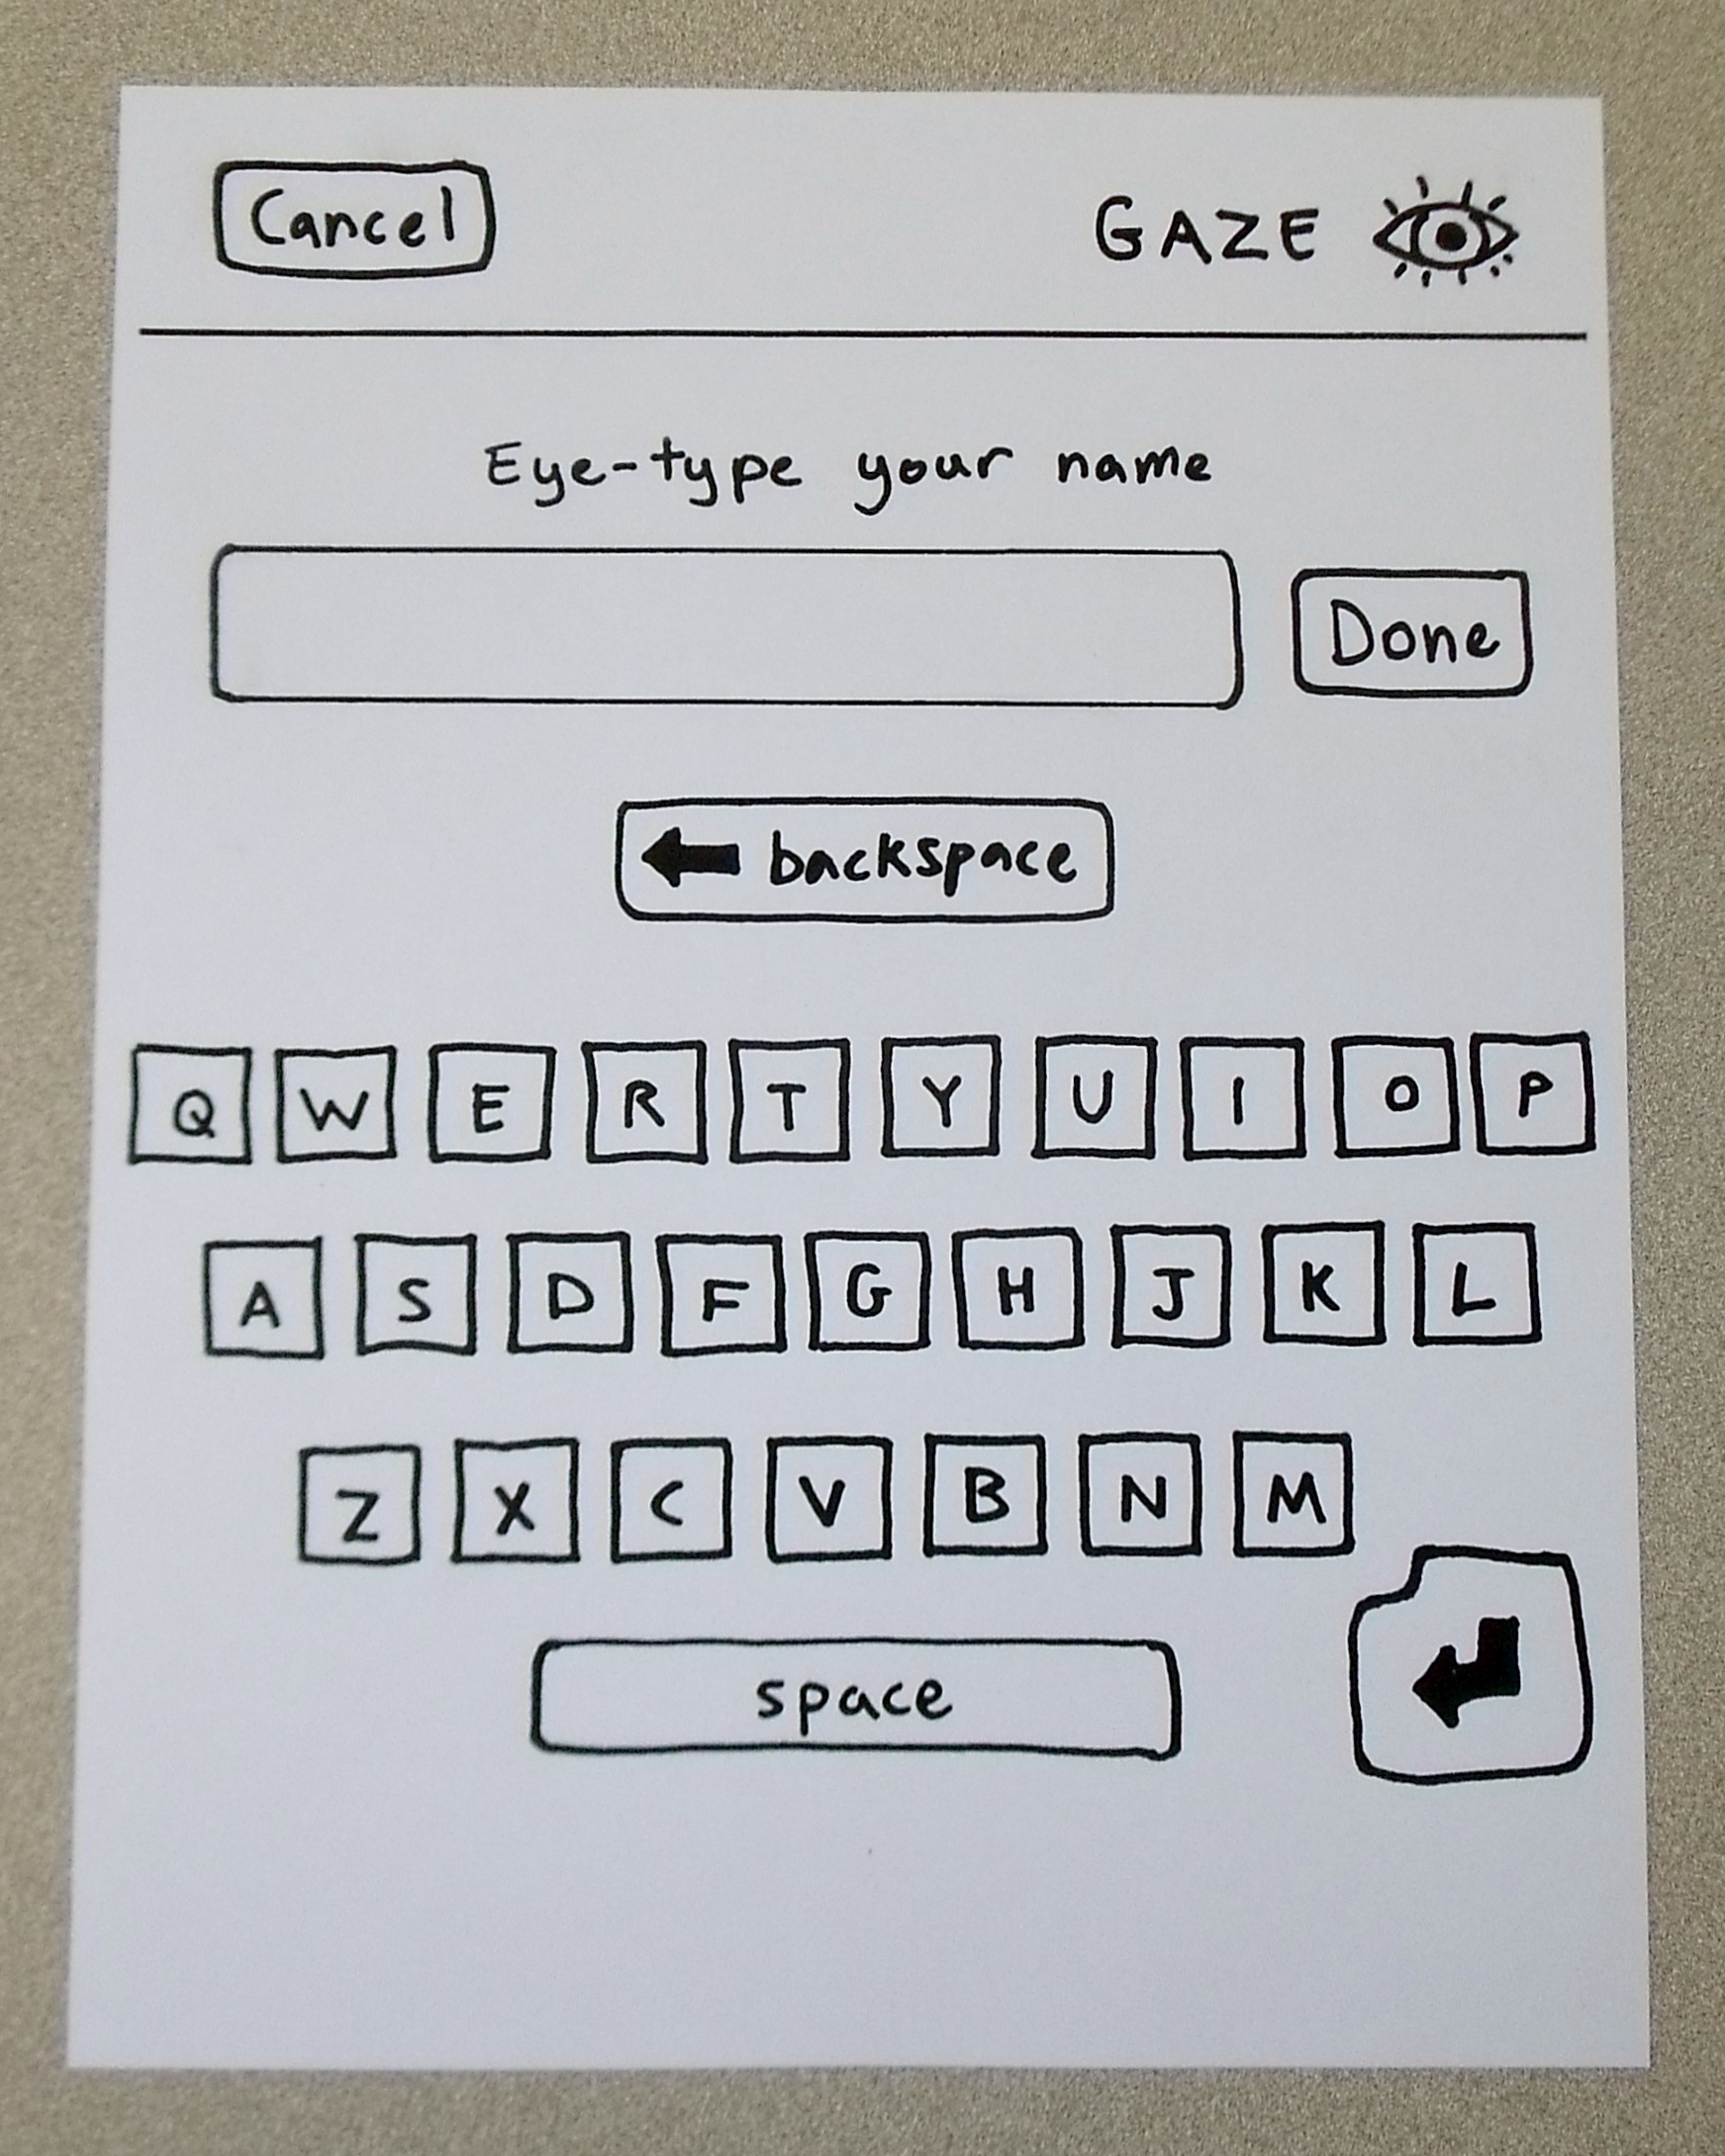 Cancel GAZE
Eye-type your name
Done
backspace
Q W E R T Y U I O P
A S D F G H J K L
Z X C V B N M
space